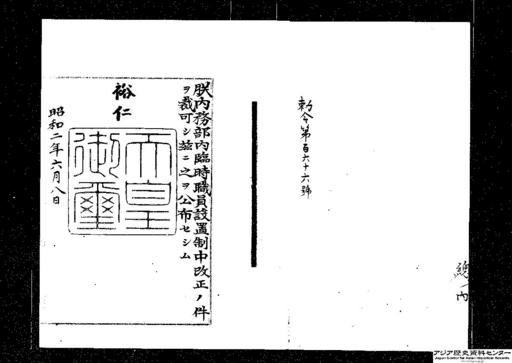 勅令第百六十六號
朕内務部内臨時職員設置制中改正ノ件
ヲ裁可シ茲ニ之ヲ公布セシム
裕仁
天皇
御璽
昭和二年六月八日
總
内
アジア歴史資料センター
Japan Center for Asian Historical Records